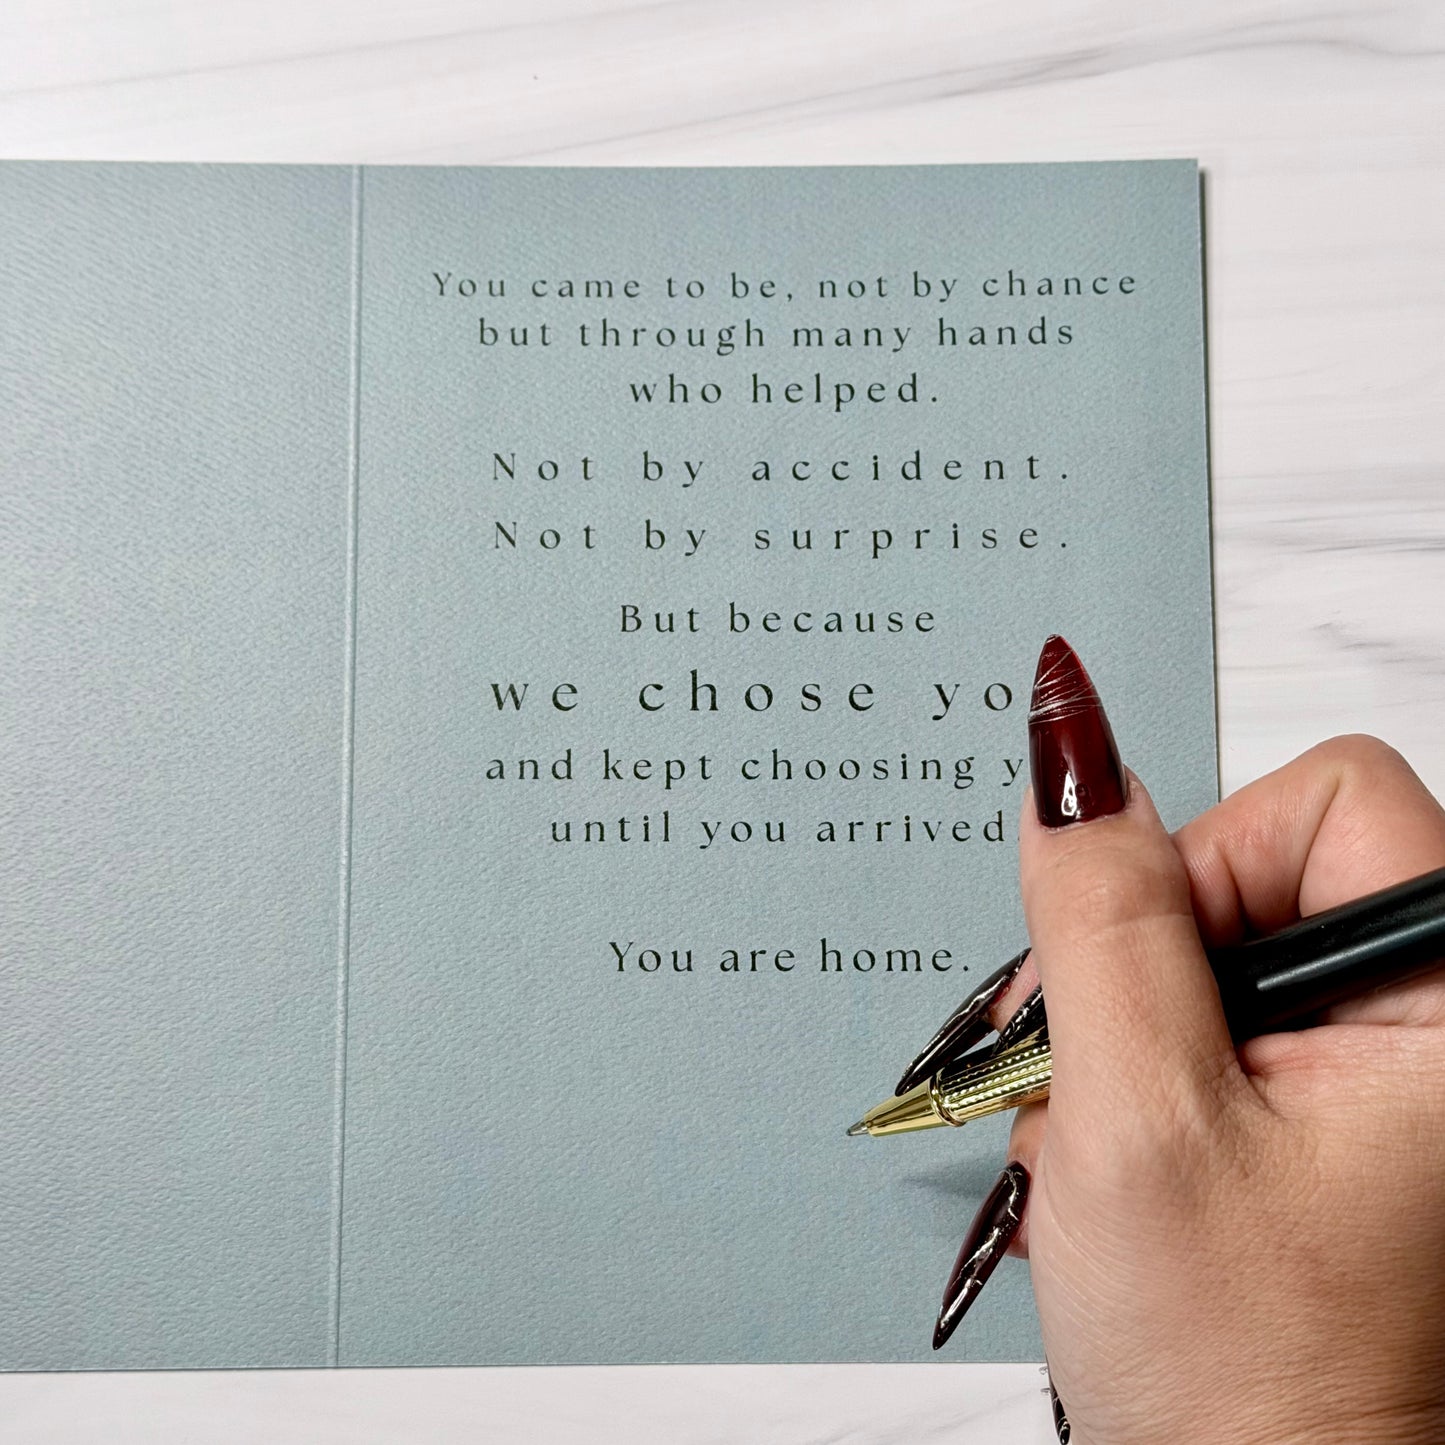 You came to be, not by chance
but through many hands
who helped.
Not by accident.
Not by surprise.
But because
we chose yo
and kept choosing y
until you arrived.
You are home.